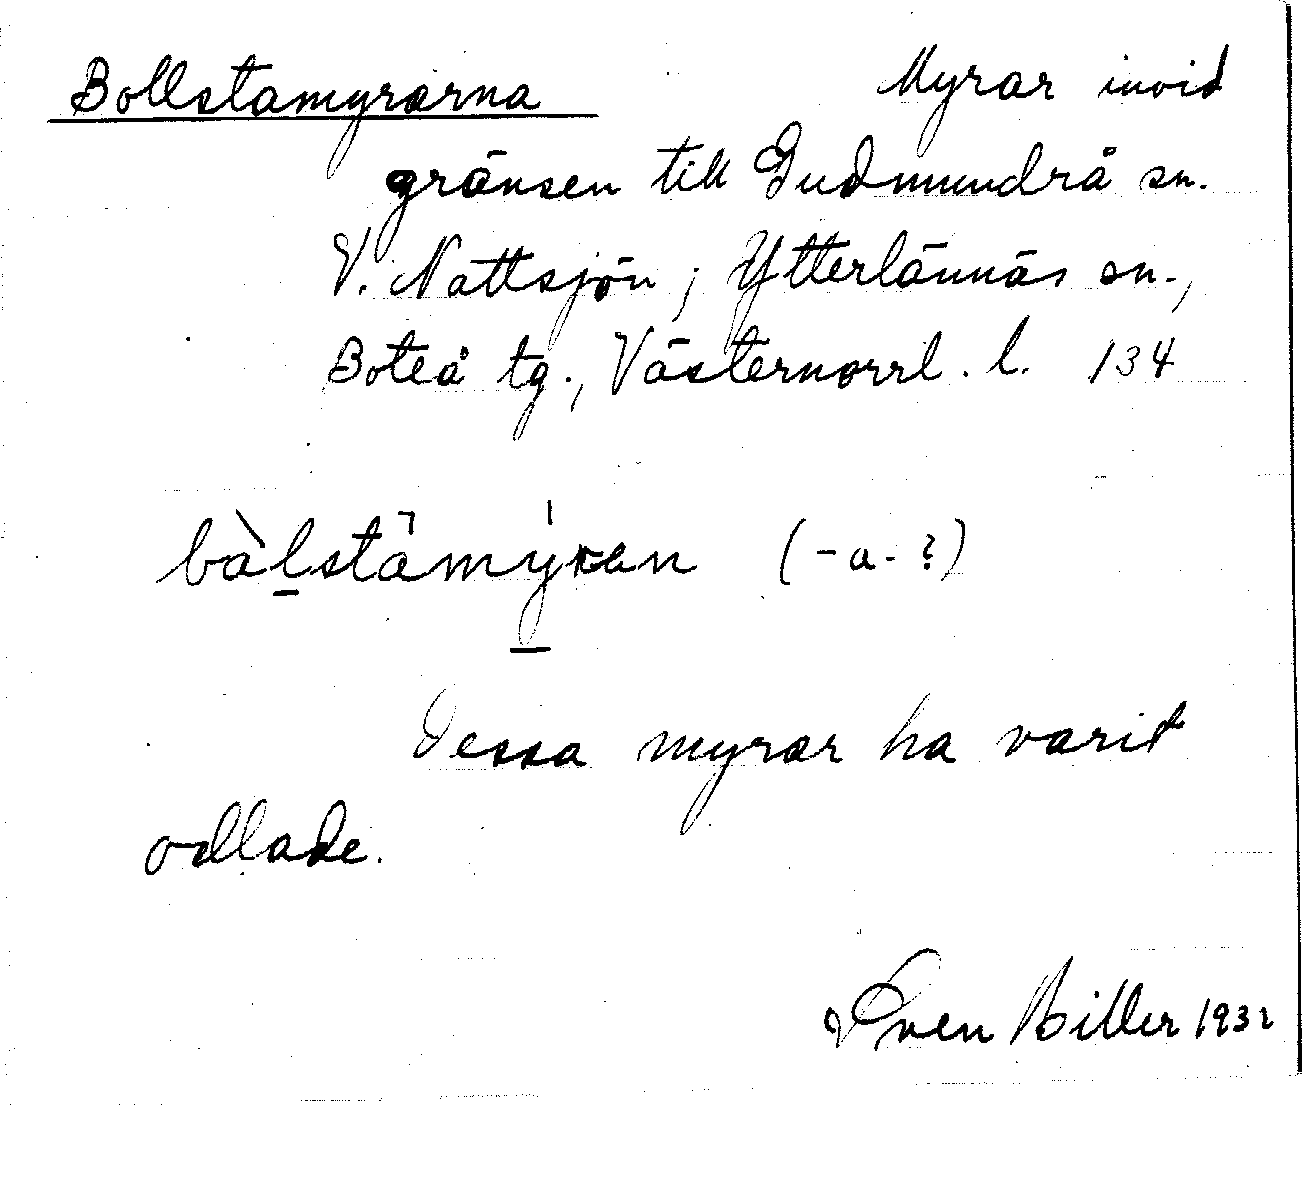 Bollstamyrarna Myrar invid
gränsen till Gudmundrå sn.
V. Nattsjön; Ytterlännäs sn.,
Boteå tg., Västernorrl. l. 134
bàlstāmýran (-a-?)
Dessa myrar ha varit
odlade.
Sven Biller 1932